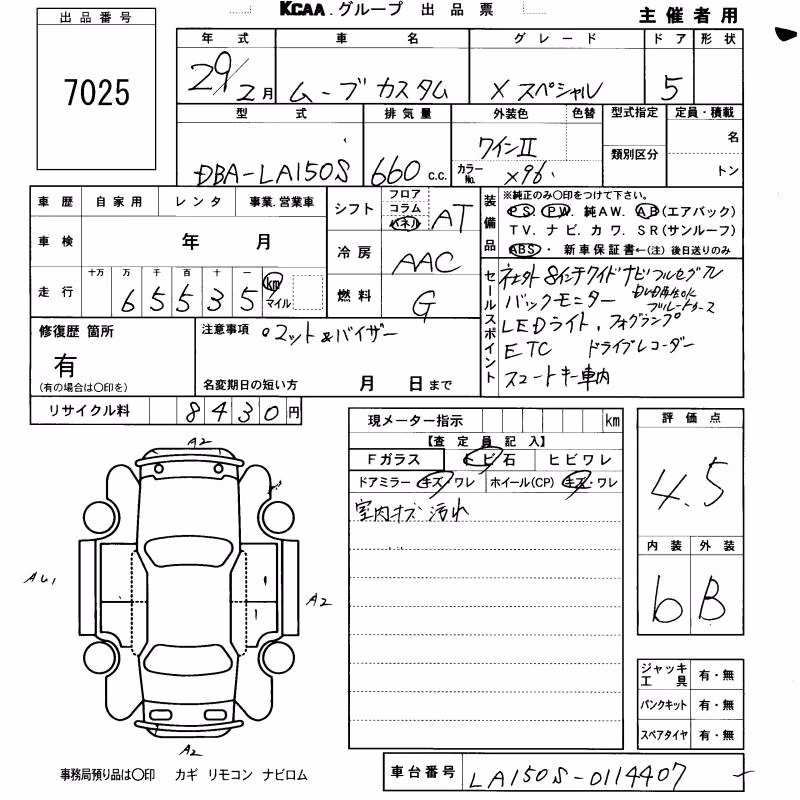 出品番号
7025
KCAA.グループ 出品票
主催者用
年式 車名 グレード ドア 形状
29/2月 ムーブ カスタム X スペシャル 5
型式 排気量 外装色 色替 型式指定 定員・積載
類別区分 名
トン
DBA-LA150S 660 c.c. ワインII カラーNo. X96
車歴 自家用 レンタ 事業.営業車
車検 年 月
走行 十万 万 千 百 十 一
6 5 5 3 5 km マイル
シフト フロア コラム パネル AT
冷房 AAC
燃料 G
装備品 ※純正のみ〇印をつけて下さい。
PS. PW. 純AW. AB(エアバック)
TV. ナビ. カワ. SR(サンルーフ)
ABS・ 新車保証書←(注)後日送りのみ
セールスポイント
8インチワイドナビフルセグTV
DVD再生OK
バックモニター ブルートゥース
LEDライト、フォグランプ
ETC ドライブレコーダー
スマートキー車内
修復歴 箇所
有
(有の場合は〇印を)
注意事項 ・マット&バイザー
名変期日の短い方 月 日まで
リサイクル料 8430円
現メーター指示 km
【査定員記入】
Fガラス トビ石 ヒビワレ
ドアミラー キズ/ワレ ホイール(CP) キズ・ワレ
室内キズ 汚れ
評価点
4.5
内装 外装
6 B
ジャッキ工具 有・無
パンクキット 有・無
スペアタイヤ 有・無
A2
AU1
A2
A2
事務局預り品は〇印 カギ リモコン ナビロム
車台番号 LA150S-0114407